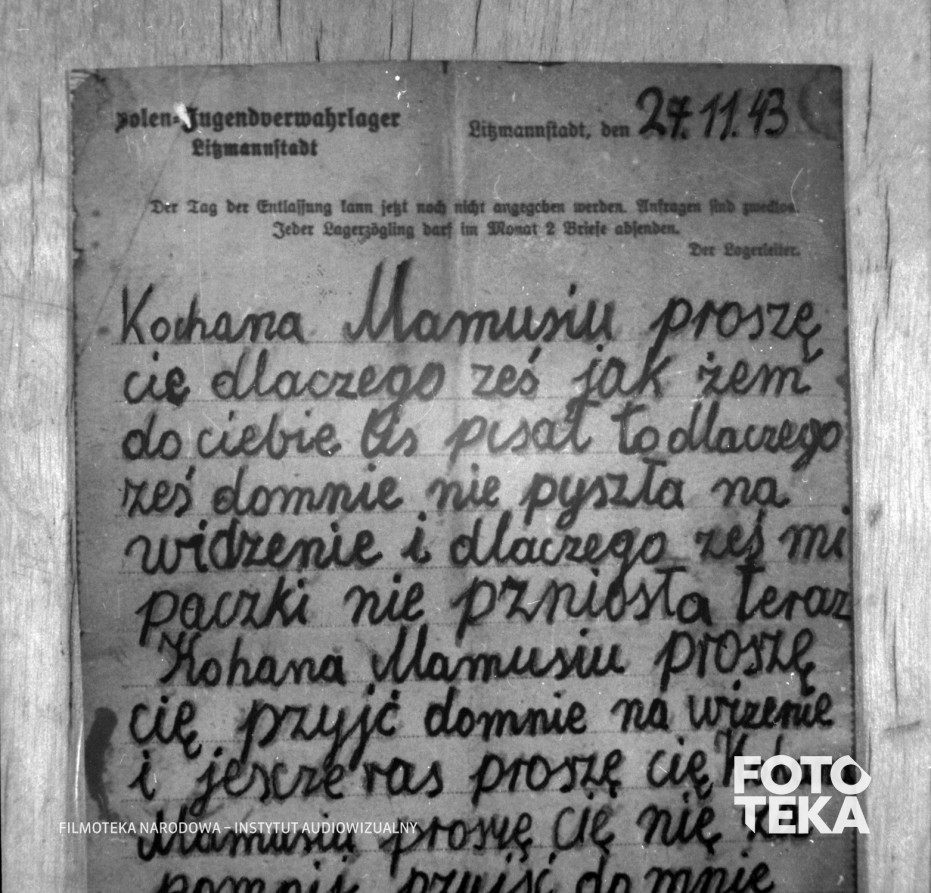 Polen-Jugendverwahrlager
Litzmannstadt
Litzmannstadt, den 27.11.43
Der Tag der Entlassung kann jetzt noch nicht angegeben werden. Anfragen sind zwecklos.
Jeder Lagerzögling darf im Monat 2 Briefe absenden.
Der Lagerleiter.
Kochana Mamusiu proszę
cię dlaczegoześ jak żem
do ciebie lis pisał to dlaczego
ześ domnie nie pyszła na
widzenie i dlaczego ześ mi
paczki nie pzniosła teraz
Kohana Mamusiu proszę
cię przyjć domnie na wizenie
i jescze ras proszę cię
Mamusiu proszę cię nię
pomnij przyjść do mnie
FOTOTEKA
FILMOTEKA NARODOWA – INSTYTUT AUDIOWIZUALNY